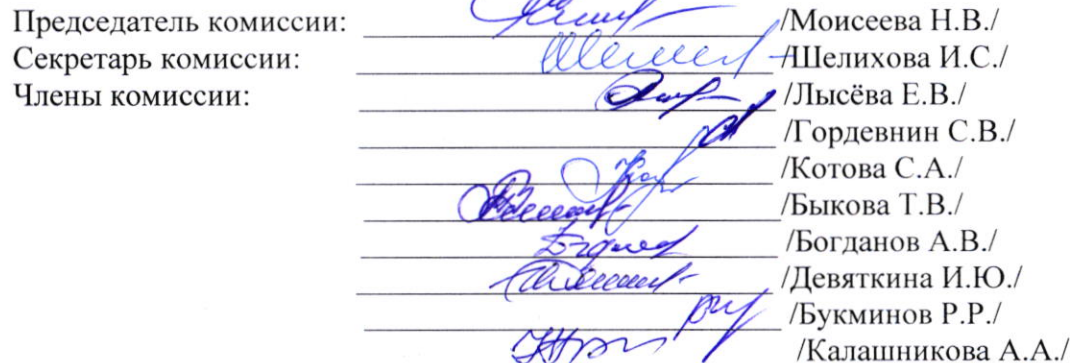 Председатель комиссии: /Моисеева Н.В./
Секретарь комиссии: /Шелихова И.С./
Члены комиссии: /Лысёва Е.В./
/Гордевнин С.В./
/Котова С.А./
/Быкова Т.В./
/Богданов А.В./
/Девяткина И.Ю./
/Букминов Р.Р./
/Калашникова А.А./